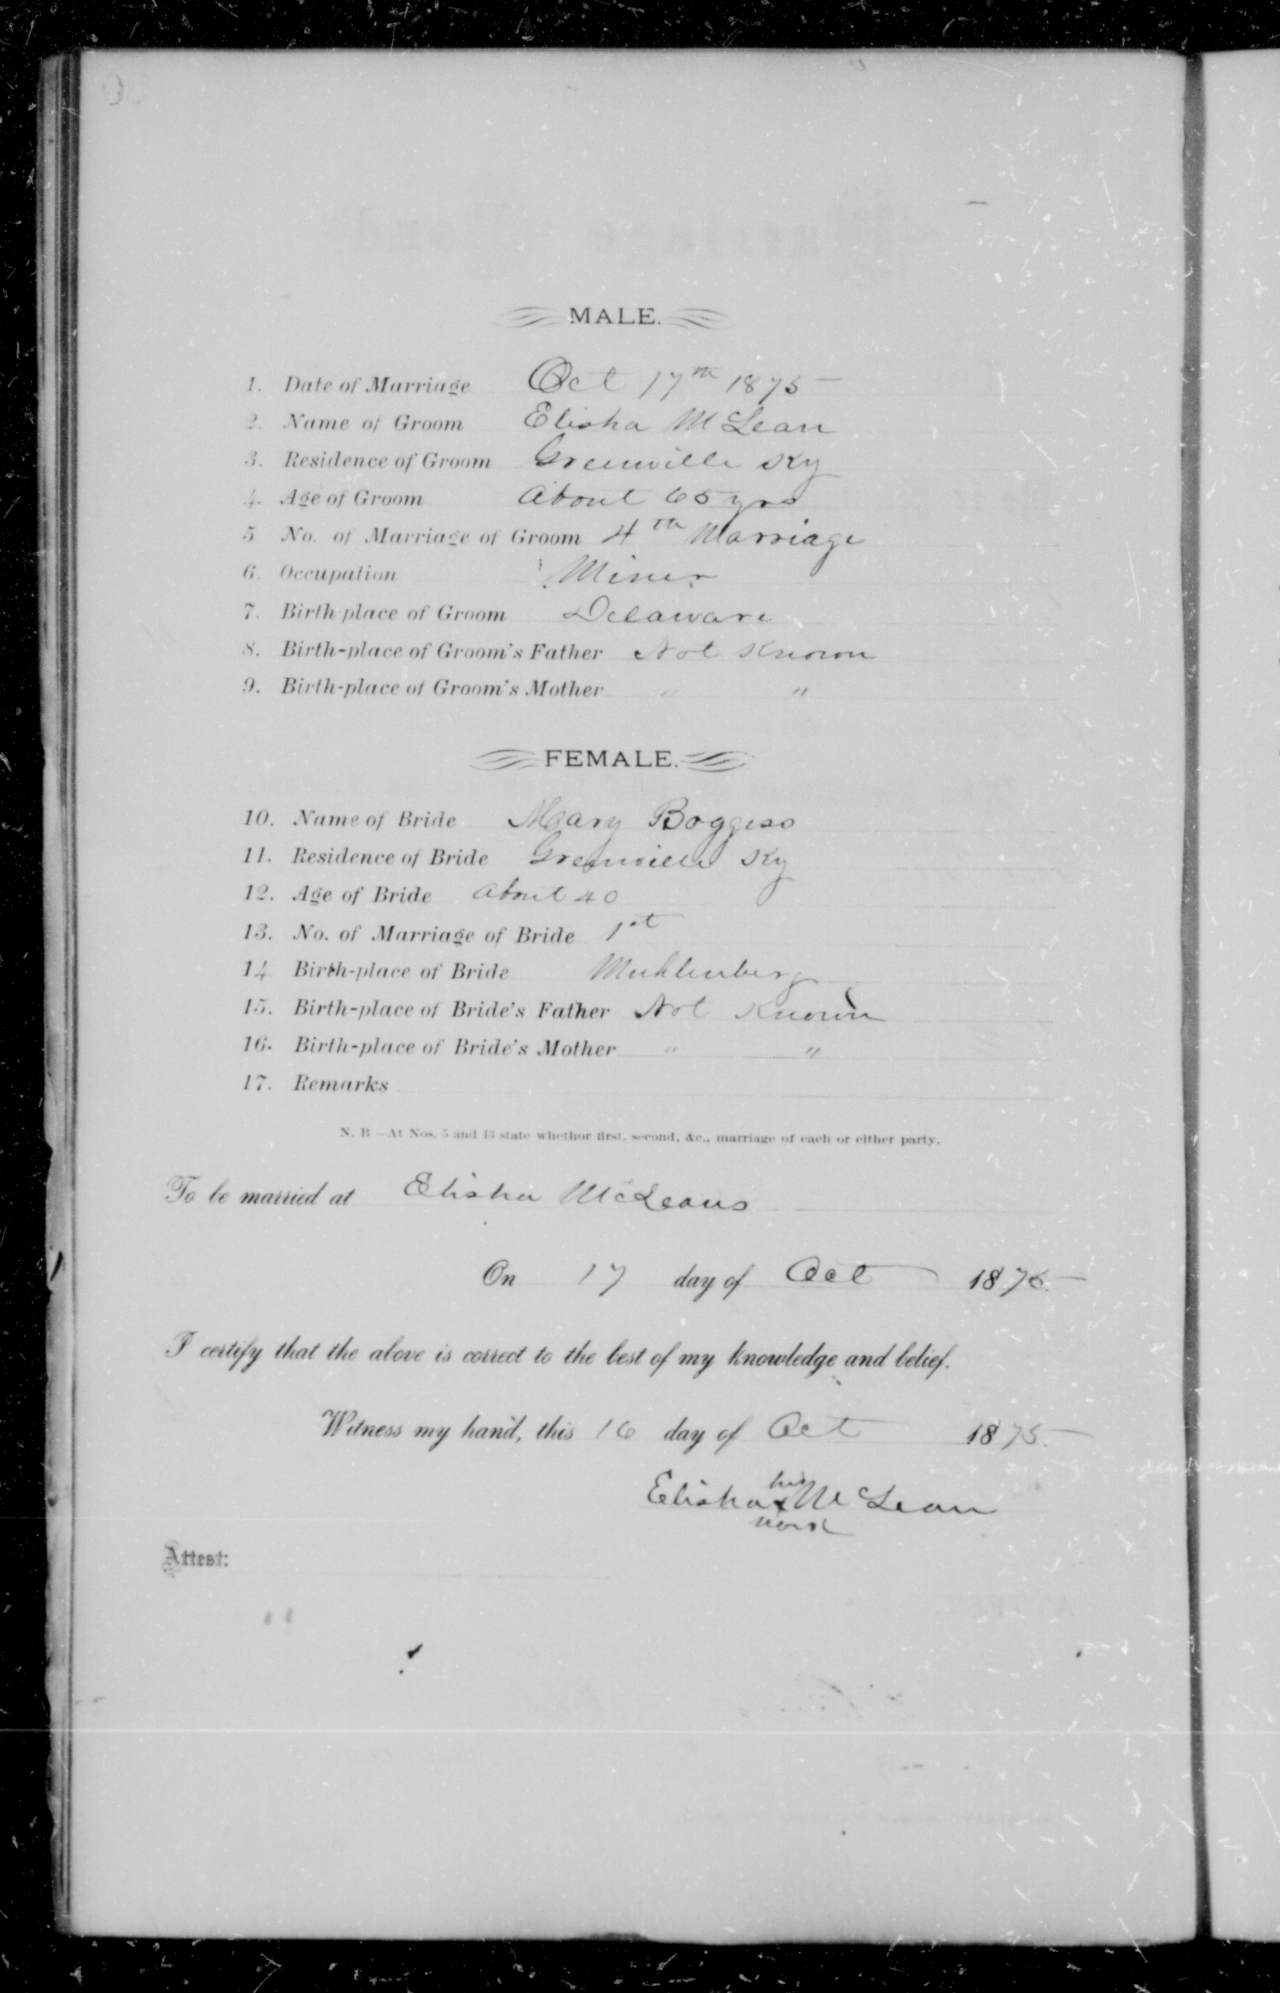 MALE.
1. Date of Marriage Oct 17th 1875
2. Name of Groom Elisha McLean
3. Residence of Groom Greenville Ky
4. Age of Groom About 65 yrs
5 No. of Marriage of Groom 4th Marriage
6. Occupation Miner
7. Birth-place of Groom Delaware
8. Birth-place of Groom's Father Not Known
9. Birth-place of Groom's Mother " "
FEMALE.
10. Name of Bride Mary Boggess
11. Residence of Bride Greenville Ky
12. Age of Bride About 40
13. No. of Marriage of Bride 1st
14 Birth-place of Bride Muhlenberg
15. Birth-place of Bride's Father Not Known
16. Birth-place of Bride's Mother " "
17. Remarks
N. B.—At Nos. 5 and 13 state whether first, second, &c., marriage of each or either party.
To be married at Elisha McLeans
On 17 day of Oct 1875
I certify that the above is correct to the best of my knowledge and belief.
Witness my hand, this 16 day of Oct 1875.
his
Elisha x McLean
mark
Attest: